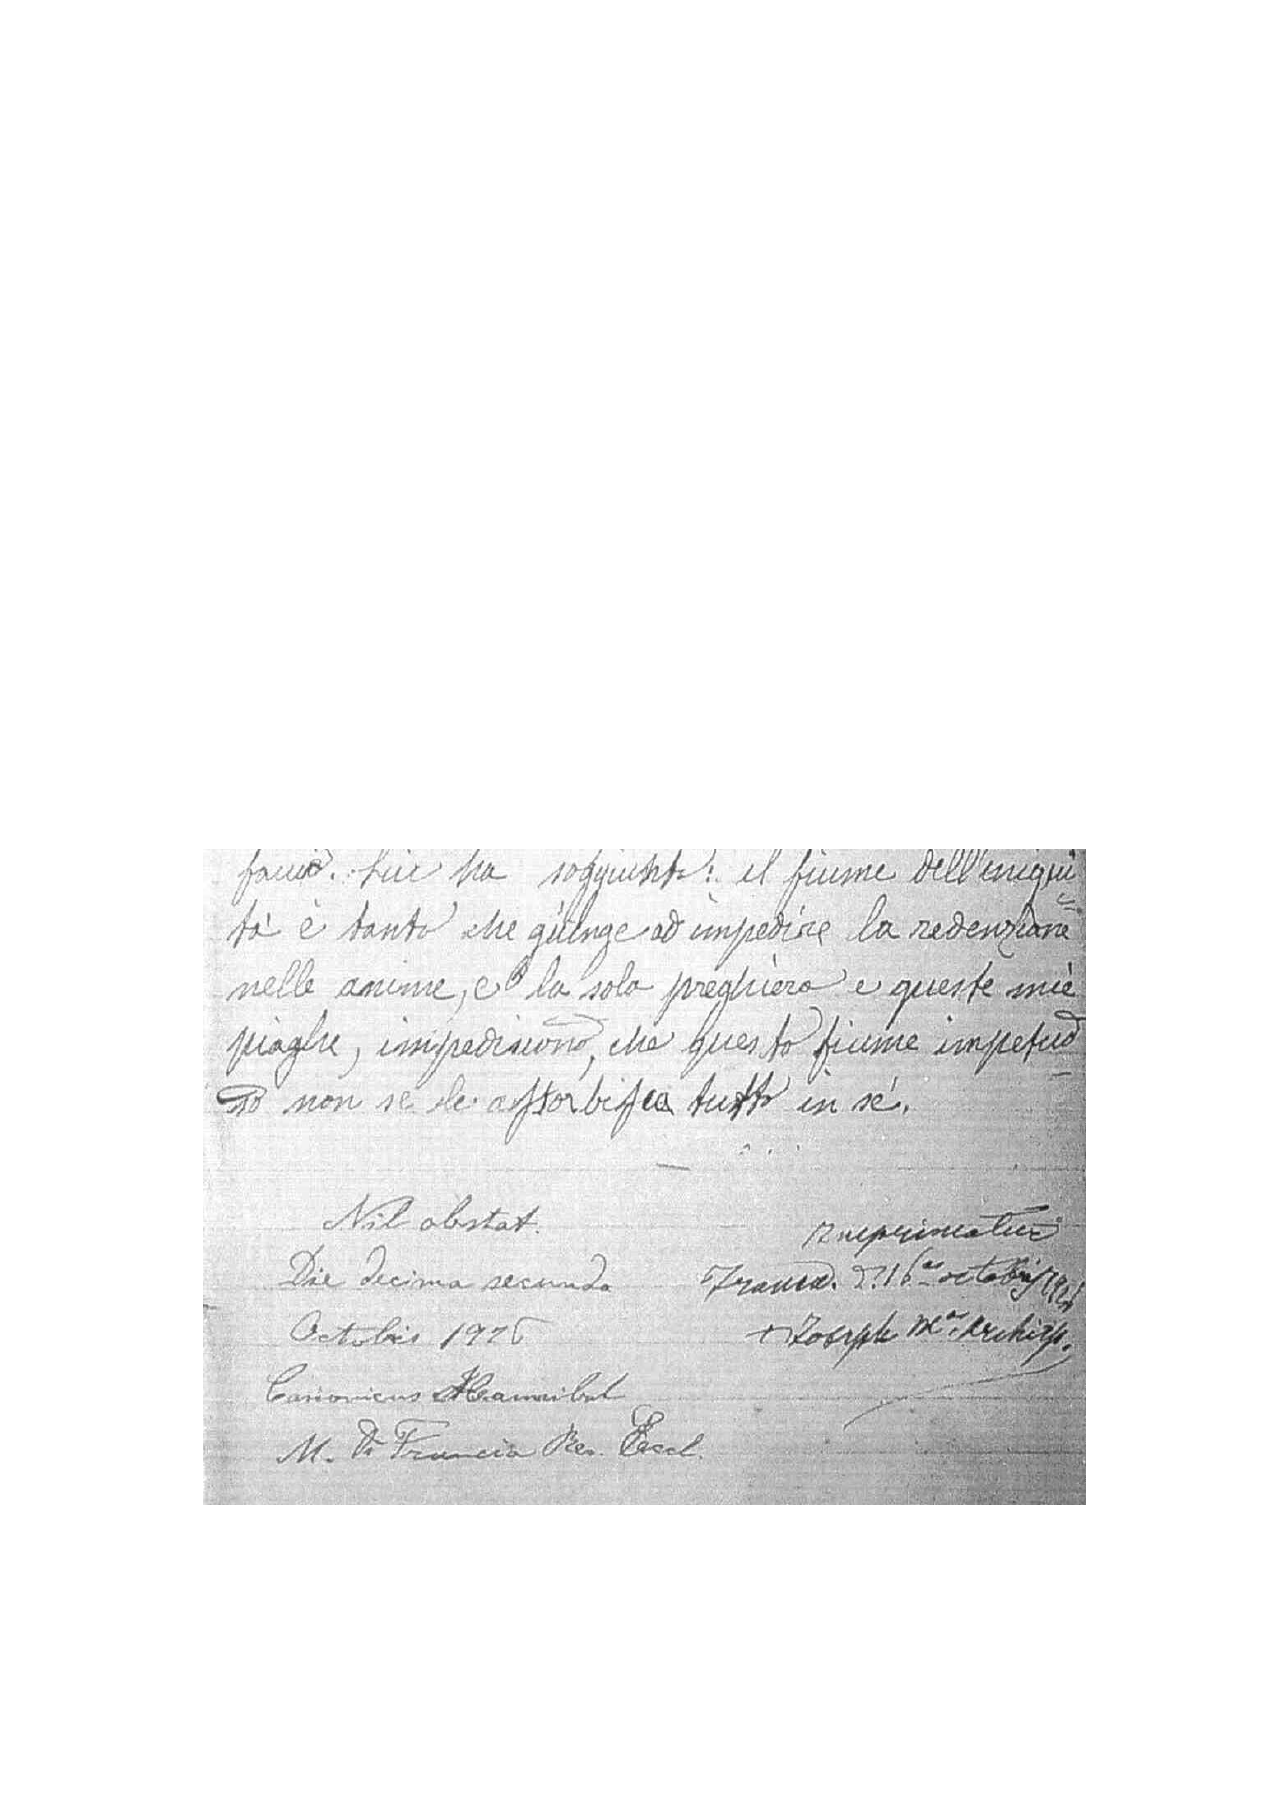 Lui ha soggiunto: il fiume dell'iniqui
tà è tanto che giunge ad impedire la redenzione
nelle anime, e la sola preghiera e queste mie
piaghe, impediscono, che questo fiume impetuo
so non se le assorbisca tutto in sé.
Nil obstat.
Die decima secunda
Octobris 1926
Canonicus Hannibal
M. Di Francia Rev. Eccl.
Imprimatur
16 octobris 1926
+ Joseph Mª Archiep.